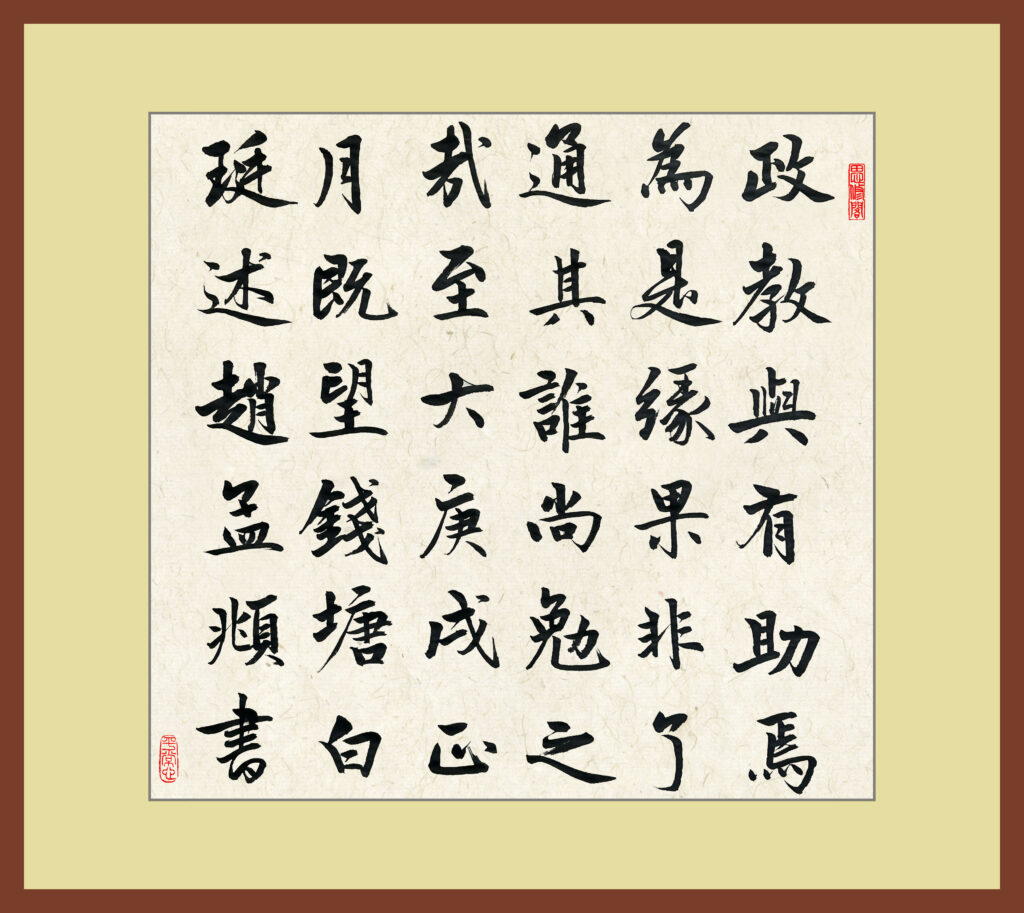 思修閣
政教與有助焉
為是緣果非了
通其誰尚勉之
哉至大庚戌正
月既望錢塘白
珽述趙孟頫書
平常心